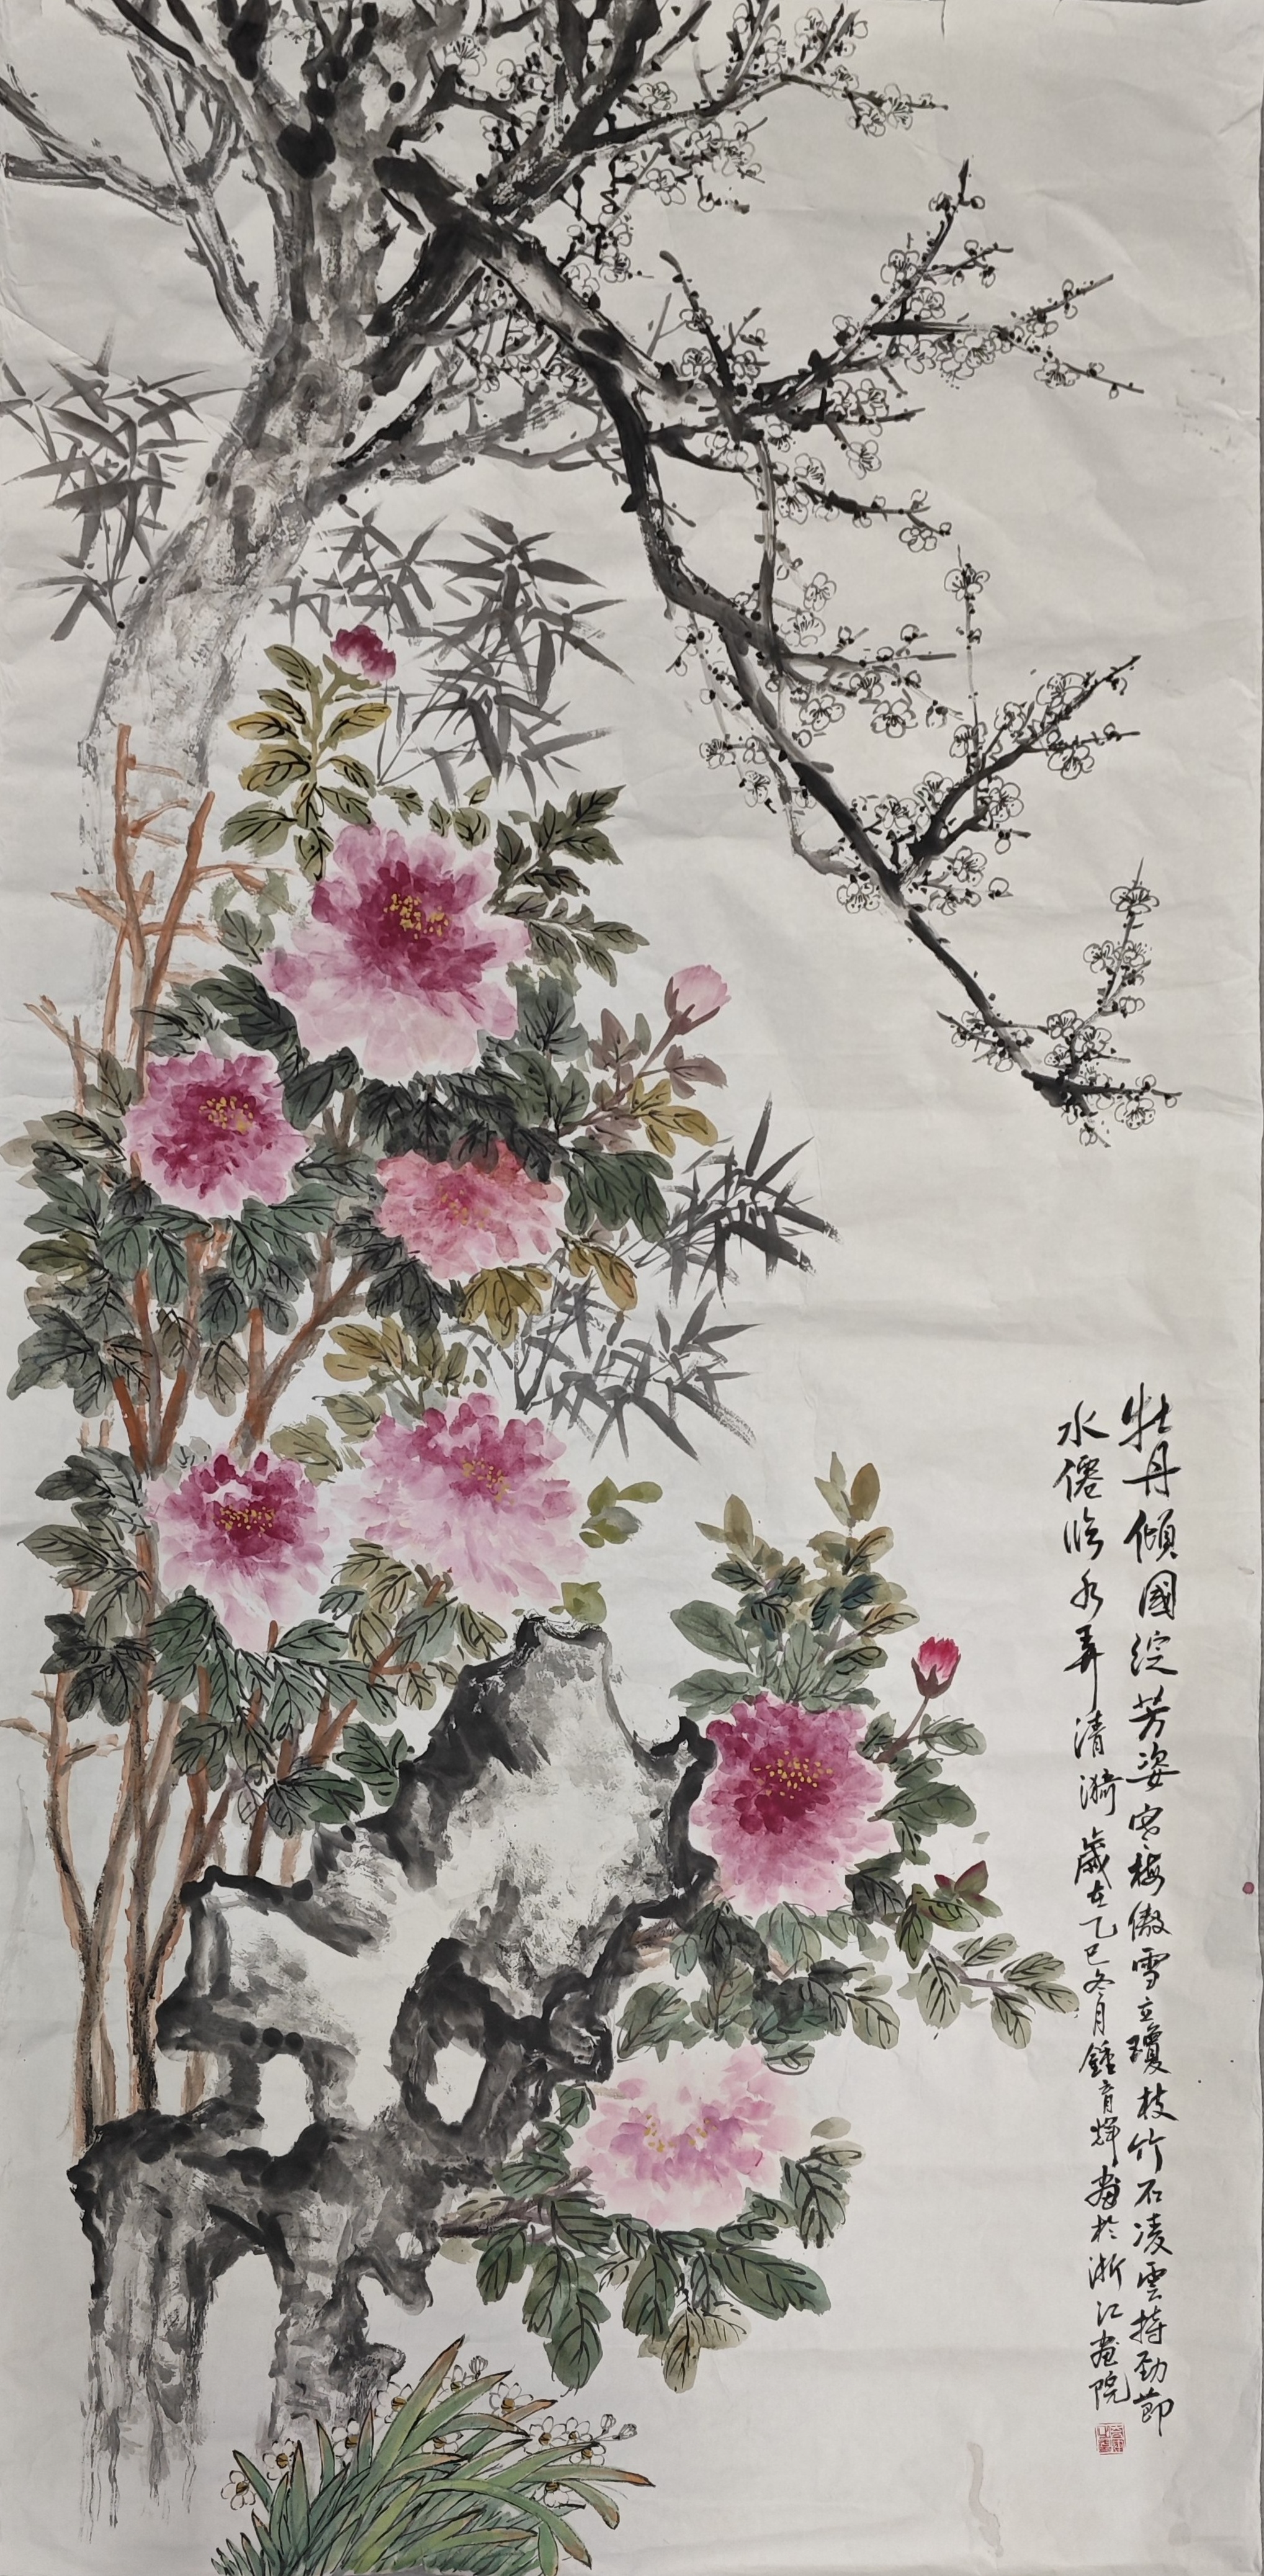 牡丹傾國綻芳姿寒梅傲雪立瓊枝竹石凌雲持勁節
水僊臨水弄清漪歲在乙巳冬月鍾育輝畫於浙江畫院